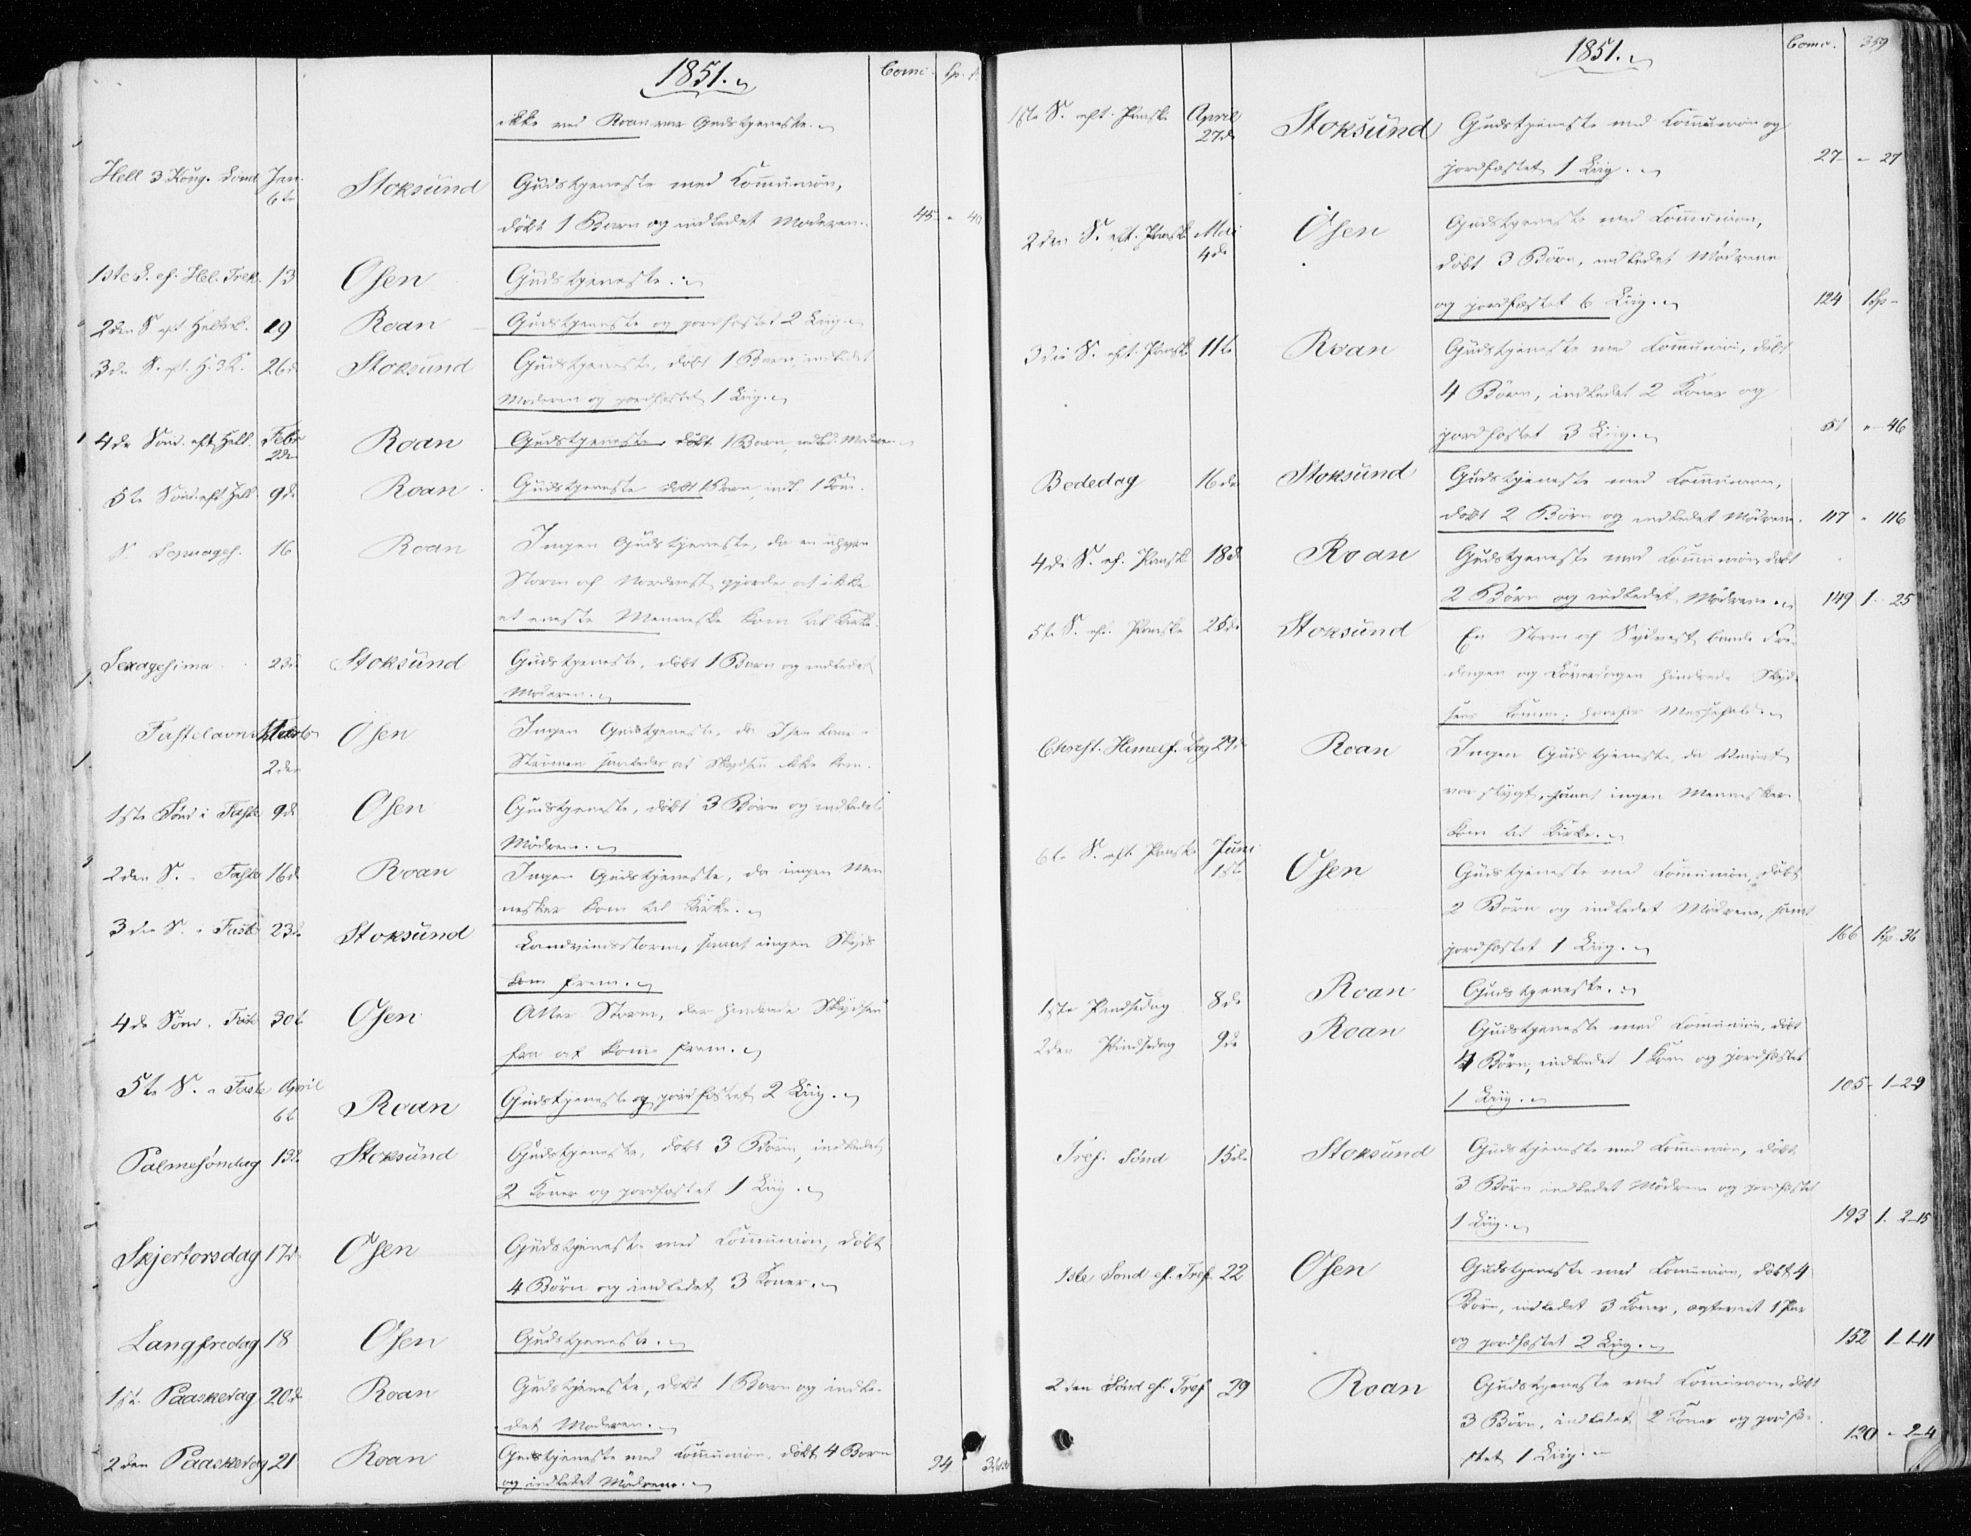 1851.
Comu.
ikke ved Roan var Gudstjeneste.
Hell 3 Kong. Jan. 6te Stoksund Gudstjeneste med Communion,
döbt 1 Barn og indledet Moderen. 45
1ste S. ef. Hel. Trek. 13 Osen Gudstjeneste.
2den S eft 19 Roan Gudstjeneste og jordfæstet 2 Liig.
3de S. eft. H. 3 K. 26d Stoksund Gudstjeneste, döbt 1 Barn, indledet
Moderen og jordfæstet 1 Liig.
4de Sönd. eft Hell. Febr 2den Roan Gudstjeneste, döbt 1 Barn, indled. Moderen
5te Sönd. eft Hell. 9de Roan Gudstjeneste döbt 1 Barn, indl. 1 Kone.
S. 16 Roan Ingen Gudstjeneste, da en
Storm af Nordvest gjorde at ikke
et eneste Menneske kom til Kirke.
Sexagesima 23d Stoksund Gudstjeneste, döbt 1 Barn og indledet
Moderen.
Fastelavns Marts 2den Osen Ingen Gudstjeneste, da
Stormen at Skydsen ikke kom.
1ste Sönd i Faste 9de Osen Gudstjeneste, döbt 3 Börn og indledet
Mödrene.
2den S. " Faste 16d Roan Ingen Gudstjeneste, da ingen Men
nesker kom til Kirke.
3die S. " Faste 23de Stoksund Landvindsstorm, samt ingen Skyds
kom frem.
4de Sönd. Faste 30te Osen Atter Storm, der hindrede Skydsen
fra at komme frem.
5te S. " Faste April 6te Roan Gudstjeneste og jordfæstet 2 Liig.
Palmesöndag 13de Stoksund Gudstjeneste, döbt 3 Börn, indledet
2 Koner og jordfæstet 1 Liig.
Skjertorsdag 17de Osen Gudstjeneste med Communion, döbt
4 Börn og indledet 3 Koner.
Langfredag 18 Osen Gudstjeneste.
1st. Paaskedag 20de Roan Gudstjeneste, döbt 1 Barn og indle-
det Moderen.
2den Paaskedag 21 Roan Gudstjeneste med Communion, döbt 4 Börn 94
og indledet Mödrene.
1851.
Comu. 359
1ste S. eft. Paaske April 27de Stoksund Gudstjeneste med Communion og
jordfæstet 1 Liig. 27 " 27
2den S. eft. Paaske Mai 4de Osen Gudstjeneste med Communion,
döbt 3 Börn, indledet Mödrene
og jordfæstet 6 Liig. 124 1 Sp -
3die S. eft. Paaske 11te Roan Gudstjeneste med Communion, döbt
4 Börn, indledet 2 Koner og
jordfæstet 3 Liig. 51 " 46
Bededag 16de Stoksund Gudstjeneste med Communion,
döbt 2 Börn og indledet Mödrene. 117 " 116
4de S. ef. Paaske 18de Roan Gudstjeneste med Communion, döbt
2 Börn og indledet Mödrene. 149 1 - 25
5te S. eft. Paaske 25de Stoksund En Storm af Sydvest baade Fre-
dagen og Löverdagen hindrede Skyd-
sens Komme,
Christ. Himmelf. Dag 29de Roan Ingen Gudstjeneste, da Veiret
var stygt, samt ingen Mennesker
kom til Kirke.
6te S. eft Paaske Juni 1ste Osen Gudstjeneste med Communion, döbt
2 Börn og indledet Mödrene, samt
jordfæstet 1 Liig. 166 1 Sp 36
1ste Pindsedag 8de Roan Gudstjeneste.
2den Pindsedag 9de Roan Gudstjeneste med Communion, döbt
4 Börn, indledet 1 Kone og jordfæstet
1 Liig. 105 - 1 - 29
Tref. Sönd 15de Stoksund Gudstjeneste med Communion, döbt
3 Börn indledet Mödrene og jordfæstet
1 Liig. 193 1. 2-15
1ste Sönd ef. Tref. 22 Osen Gudstjeneste med Communion, döbt 4
Börn, indledet 3 Koner, ægteviet 1 Par
og jordfæstet 2 Liig. 152 1-1-11
2den Sönd ef. Tref 29 Roan Gudstjeneste med Communion, döbt
3 Börn, indledet 2 Koner og jordfæ-
stet 1 Liig. 120 " 2-4